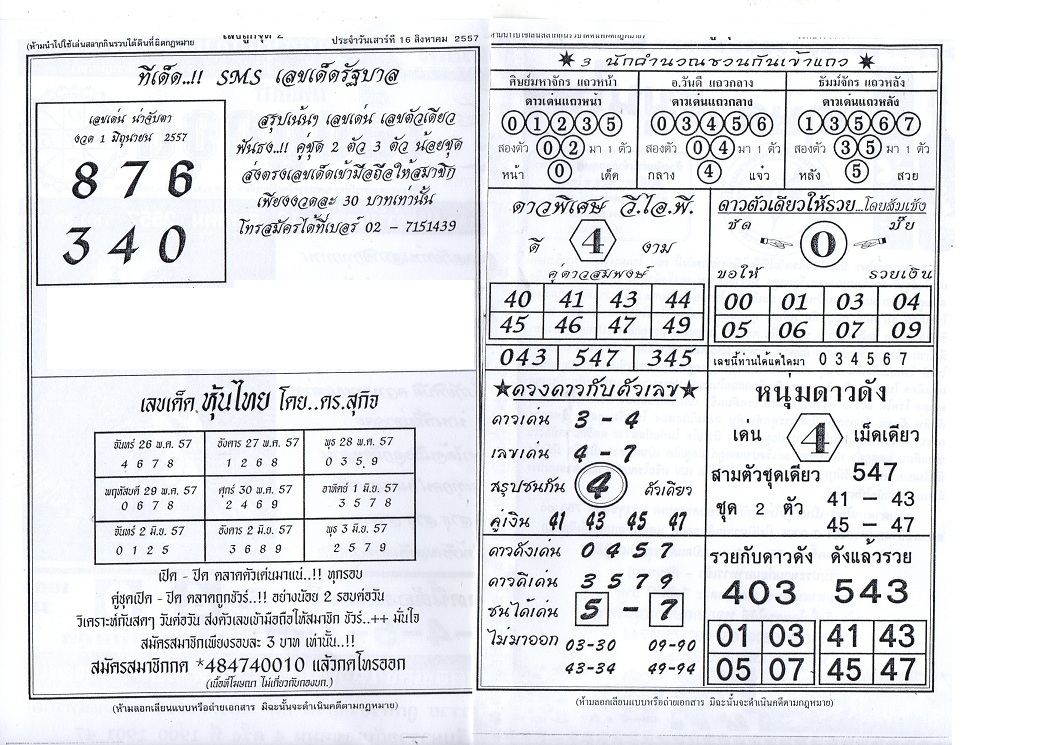 (ห้ามนำไปใช้เล่นสลากกินรวบได้ดินที่ผิดกฎหมาย
ประจำวันเสาร์ที่ 16 สิงหาคม 2557
ทีเด็ด..!! SMS เลขเด็ดรัฐบาล
เลขเด่น น่าจับตา
งวด 1 มิถุนายน 2557
8 7 6
3 4 0
สรุปเน้นๆ เลขเด่น เลขตัวเดียว
ฟันธง..!! คู่ชุด 2 ตัว 3 ตัว น้อยชุด
ส่งตรงเลขเด็ดเข้ามือถือให้สมาชิก
เพียงงวดละ 30 บาทเท่านั้น
โทรสมัครได้ที่เบอร์ 02 - 7151439
เลขเด็ด หุ้นไทย โดย..ดร.สุกิจ
จันทร์ 26 พ.ค. 57 อังคาร 27 พ.ค. 57 พุธ 28 พ.ค. 57
4 6 7 8 1 2 6 8 0 3 5 9
พฤหัสบดี 29 พ.ค. 57 ศุกร์ 30 พ.ค. 57 อาทิตย์ 1 มิ.ย. 57
0 6 7 8 2 4 6 9 3 5 7 8
จันทร์ 2 มิ.ย. 57 อังคาร 2 มิ.ย. 57 พุธ 3 มิ.ย. 57
0 1 2 5 3 6 8 9 2 5 7 9
เปิด - ปิด ตลาดตัวเด่นมาแน่..!! ทุกรอบ
คู่ชุดเปิด - ปิด ตลาดถูกชัวร์..!! อย่างน้อย 2 รอบต่อวัน
วิเคราะห์กันสดๆ วันต่อวัน ส่งตัวเลขเข้ามือถือให้สมาชิก ชัวร์..++ มั่นใจ
สมัครสมาชิกเพียงรอบละ 3 บาท เท่านั้น..!!
สมัครสมาชิกกด *484740010 แล้วกดโทรออก
(เนื้อที่โฆษณา ไม่เกี่ยวกับกองบก.)
(ห้ามลอกเลียนแบบหรือถ่ายเอกสาร มิฉะนั้นจะดำเนินคดีตามกฎหมาย)
3 นักคำนวณชวนกันเข้าแถว
ศิษย์มหาจักร แถวหน้า อ.วันดี แถวกลาง ธัมม์จักร แถวหลัง
ดาวเด่นแถวหน้า ดาวเด่นแถวกลาง ดาวเด่นแถวหลัง
0 1 2 3 5 0 3 4 5 6 1 3 5 6 7
สองตัว 0 2 มา 1 ตัว สองตัว 0 4 มา 1 ตัว สองตัว 3 5 มา 1 ตัว
หน้า 0 เด็ด กลาง 4 แจ๋ว หลัง 5 สวย
ดาวพิเศษ วี.ไอ.พี.
ดี 4 งาม
คู่ดาวสมพงษ์
40 41 43 44
45 46 47 49
043 547 345
ดาวตัวเดียวให้รวย...โดยส้มเช้ง
ชัด 0 มั๊ย
ขอให้ รวยเงิน
00 01 03 04
05 06 07 09
เลขนี้ท่านได้แต่ใดมา 0 3 4 5 6 7
ดวงดาวกับตัวเลข
ดาวเด่น 3 - 4
เลขเด่น 4 - 7
สรุปชนกัน 4 ตัวเดียว
คู่เงิน 41 43 45 47
ดาวดังเด่น 0 4 5 7
ดาวดีเด่น 3 5 7 9
ชนได้เด่น 5 - 7
ไม่มาออก 03-30 09-90
43-34 49-94
หนุ่มดาวดัง
เด่น 4 เม็ดเดียว
สามตัวชุดเดียว 547
ชุด 2 ตัว 41 - 43
45 - 47
รวยกับดาวดัง ดังแล้วรวย
403 543
01 03 41 43
05 07 45 47
(ห้ามลอกเลียนแบบหรือถ่ายเอกสาร มิฉะนั้นจะดำเนินคดีตามกฎหมาย)